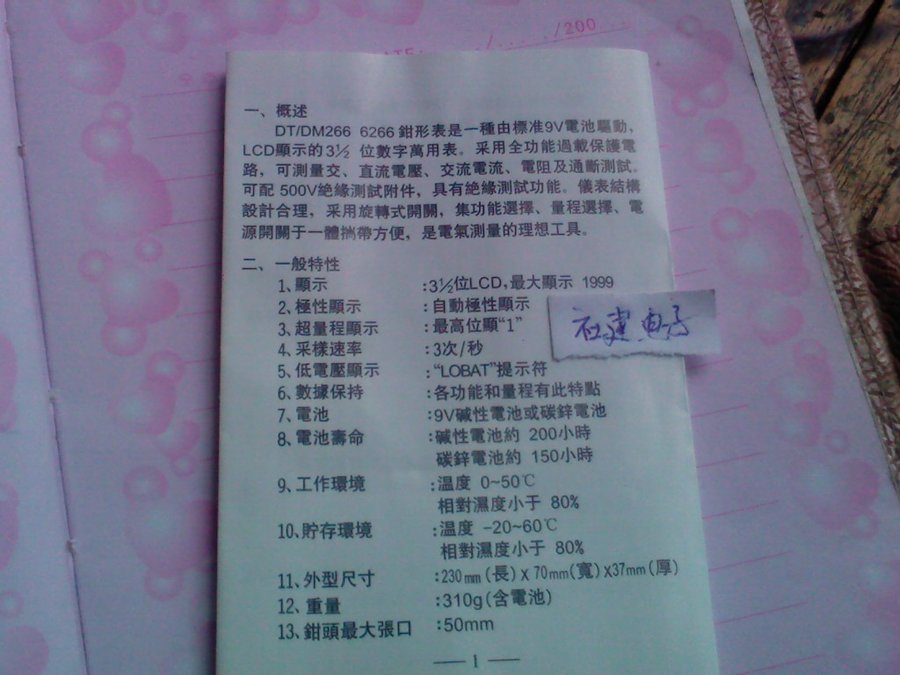 /......../200....
一、概述
DT/DM266 6266 鉗形表是一種由標准9V電池驅動，
LCD顯示的3½ 位數字萬用表。采用全功能過載保護電
路，可測量交、直流電壓、交流電流、電阻及通斷測試。
可配 500V絶緣測試附件，具有絶緣測試功能。儀表結構
設計合理，采用旋轉式開關，集功能選擇、量程選擇、電
源開關于一體攜帶方便，是電氣測量的理想工具。
二、一般特性
1、顯示 :3½位LCD,最大顯示 1999
2、極性顯示 :自動極性顯示
3、超量程顯示 :最高位顯“1”
4、采樣速率 :3次/秒
5、低電壓顯示 :“LOBAT”提示符
6、數據保持 :各功能和量程有此特點
7、電池 :9V碱性電池或碳鋅電池
8、電池壽命 :碱性電池約 200小時
碳鋅電池約 150小時
9、工作環境 :溫度 0~50℃
相對濕度小于 80%
10、貯存環境 :溫度 -20~60℃
相對濕度小于 80%
11、外型尺寸 :230mm(長)x 70mm(寬)x37mm(厚)
12、重量 :310g(含電池)
13、鉗頭最大張口 :50mm
— 1 —
电子